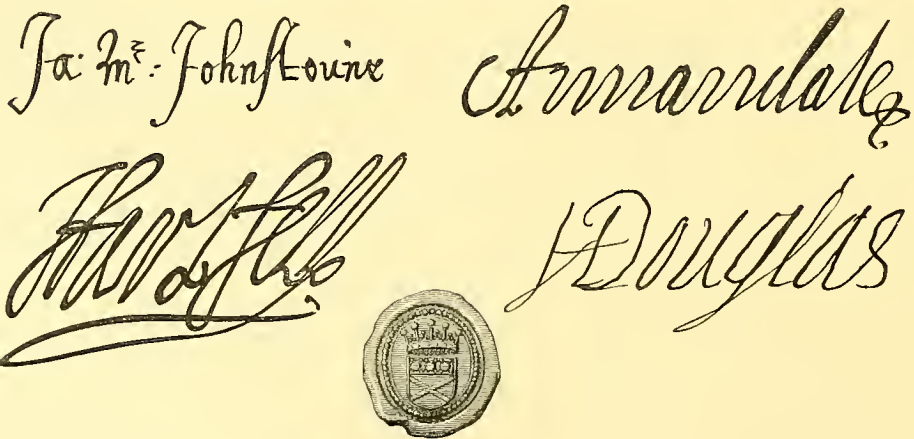 Ja: Mr: Johnstoune Annandale
Hartfell HDouglas